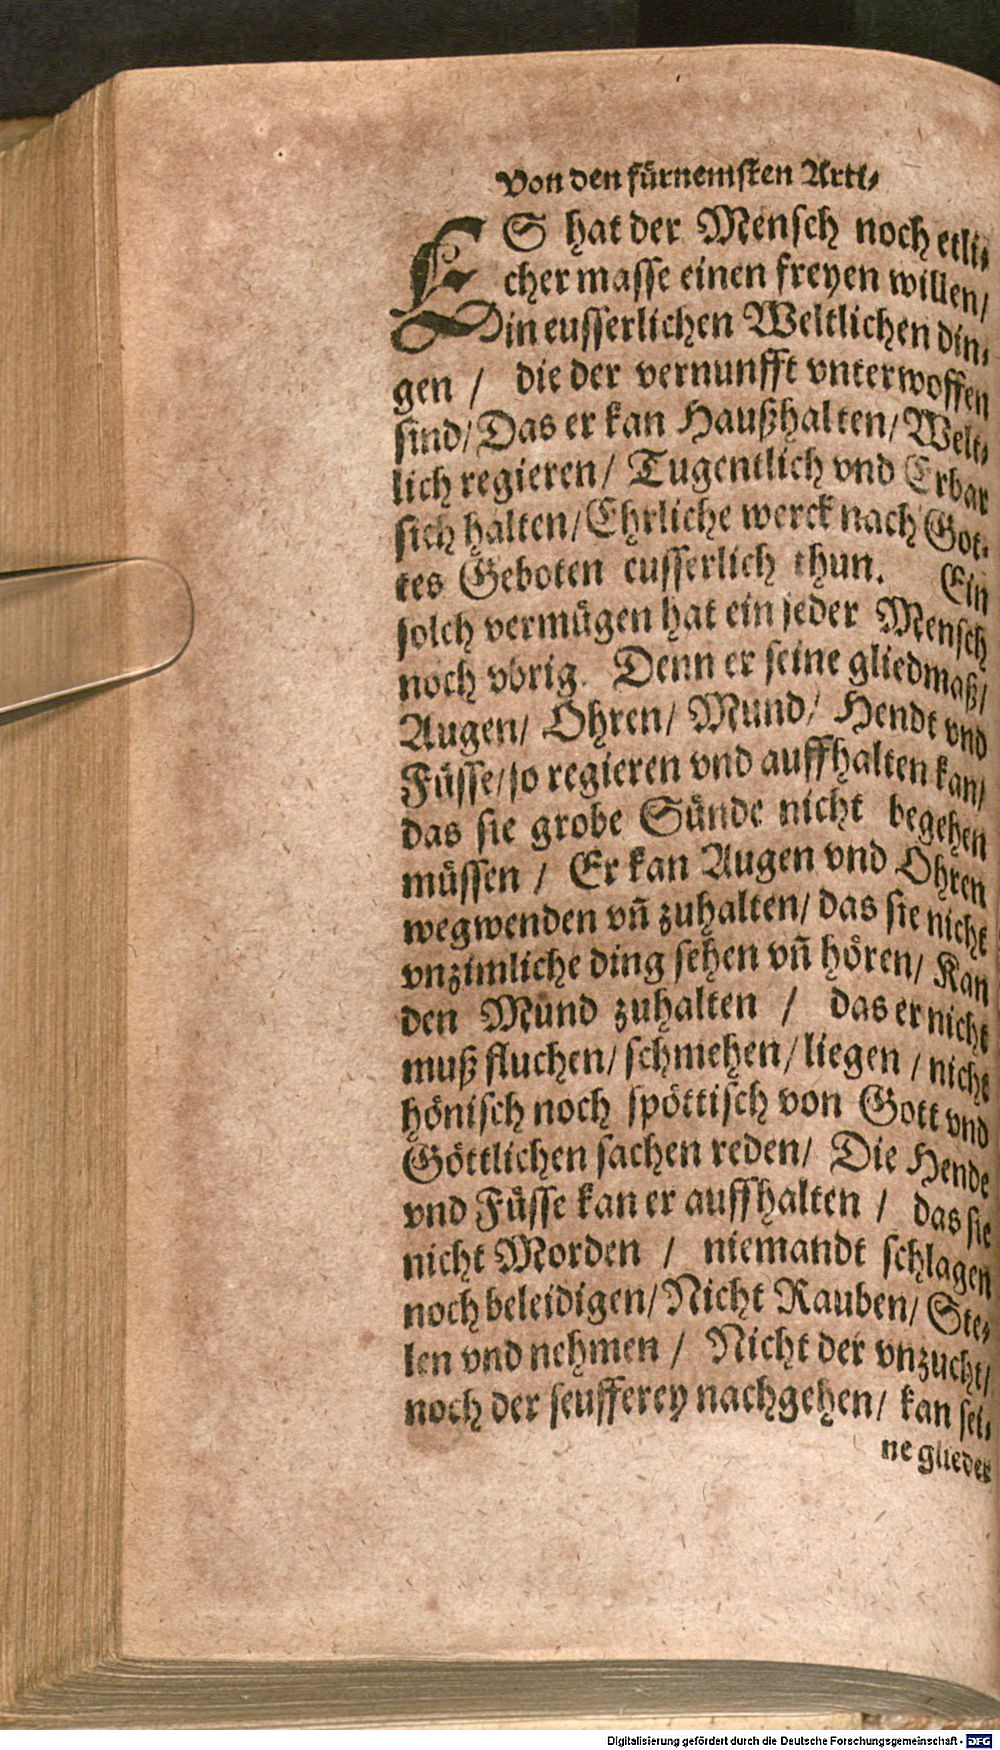 Von den fürnemsten Arti⸗
ES hat der Mensch noch etli⸗
cher masse einen freyen willen/
in eusserlichen Weltlichen din⸗
gen / die der vernunfft vnterwoffen
sind/ Das er kan Haußhalten/ Welt⸗
lich regieren/ Tugentlich vnd Erbar
sich halten/ Ehrliche werck nach Got⸗
tes Geboten eusserlich thun. Ein
solch vermügen hat ein jeder Mensch
noch vbrig. Denn er seine gliedmaß/
Augen/ Ohren/ Mund/ Hendt vnd
Füsse/ so regieren vnd auffhalten kan/
das sie grobe Sünde nicht begehen
müssen / Er kan Augen vnd Ohren
wegwenden vn̄ zuhalten/ das sie nicht
vnzimliche ding sehen vn̄ hören/ Kan
den Mund zuhalten / das er nicht
muß fluchen/ schmehen/ liegen / nicht
hönisch noch spöttisch von Gott vnd
Göttlichen sachen reden/ Die Hende
vnd Füsse kan er auffhalten / das sie
nicht Morden / niemandt schlagen
noch beleidigen/ Nicht Rauben/ Ste⸗
len vnd nehmen / Nicht der vnzucht/
noch der seufferey nachgehen/ kan sei⸗
ne glieder
Digitalisierung gefördert durch die Deutsche Forschungsgemeinschaft - DFG